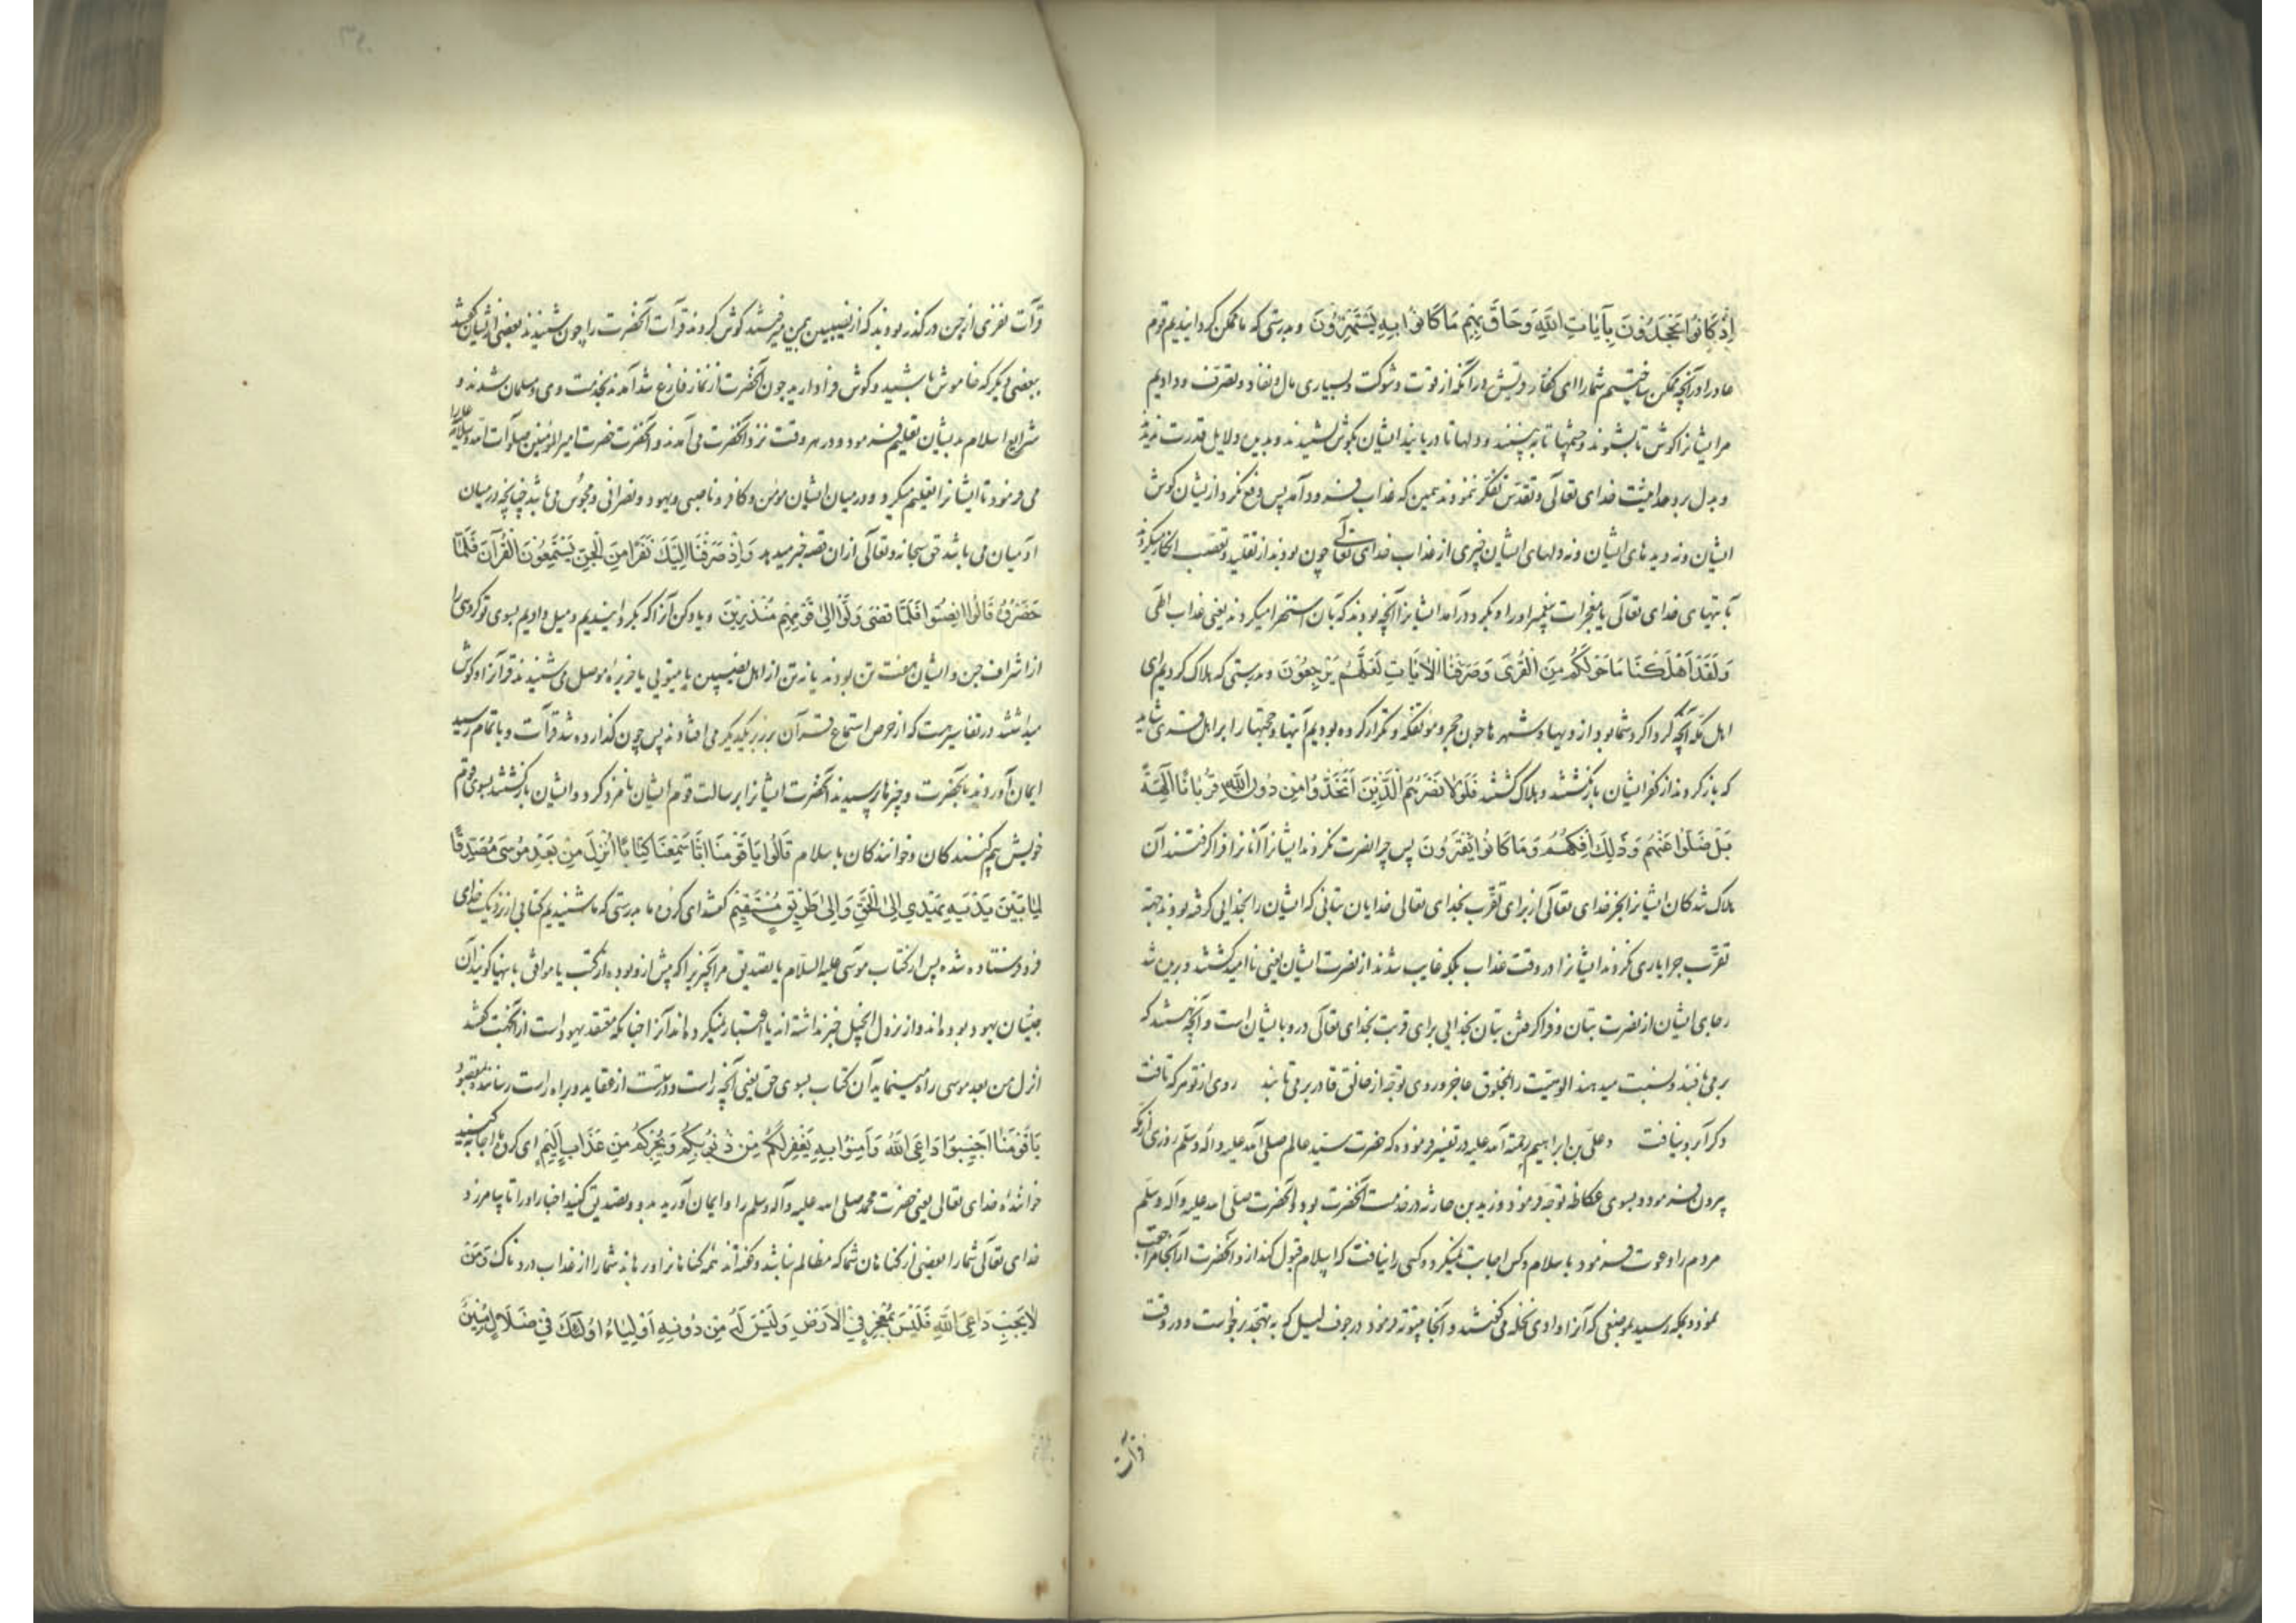 إِذْ كَانُوا يَجْحَدُونَ بِآيَاتِ اللَّهِ وَحَاقَ بِهِمْ مَا كَانُوا بِهِ يَسْتَهْزِؤُنَ و بدرستی که ما ممکن کردانیدیم قوم
عاد را در آنچه ممکن ساختیم شما را ای کفار قریش در آنکه از قوت و شوکت و بسیاری مال و نفاذ و تصرف و دادیم
مر ایشانرا کوش تا بشنوند و چشمها تا به بینند و دلها تا دریابند ایشان بکوش نشنیدند و بدین دلایل قدرت ندیدند
و بدل بر وحدانیت خدای تعالی و تقدس تفکر ننمودند همین که عذاب فرود آمد پس دفع نکرد از یشان کوش
ایشان و نه دیدهای ایشان و نه دلهای ایشان چیزی از عذاب خدای تعالی چون بودند از تقلید و تعصب انکار میکردند
بآیتهای خدای تعالی یا معجزات پیغمبر او را و بکرد در آمد ایشانرا آنچه بودند که بآن استهزا میکردند یعنی عذاب الهی
وَلَقَدْ أَهْلَكْنَا مَا حَوْلَكُمْ مِنَ الْقُرَى وَصَرَّفْنَا الْآيَاتِ لَعَلَّهُمْ يَرْجِعُونَ و بدرستی که هلاک کردیم ای
اهل مکه آنچه کرداکرد شما بود از دیها و شهرها چون حجر و موتفکه و تکرار کرده بودیم آیتها و حجتها را بر اهل قری شاید
که باز کردند از کفر ایشان بازنکشتند و هلاک کشتند فَلَوْلَا نَصَرَهُمُ الَّذِينَ اتَّخَذُوا مِنْ دُونِ اللَّهِ قُرْبَانًا آلِهَةً
بَلْ ضَلُّوا عَنْهُمْ وَذَلِكَ إِفْكُهُمْ وَمَا كَانُوا يَفْتَرُونَ پس چرا نصرت نکردند ایشانرا آنانرا فرا کرفتند آن
هلاک شدکان ایشانرا بجز خدای تعالی از برای تقرب بخدای تعالی خدایان بتانی که ایشان را بخدایی کرفته بودند بجهة
تقرب چرا یاری نکردند ایشانرا در وقت عذاب بلکه غایب شدند از نصرت ایشان یعنی ناامید کشتند و بریده شد
رجای ایشان از نصرت بتان و فراکرفتن بتان بخدایی برای قربت بخدای تعالی دروغ ایشان است و آنچه هستند که
بر می بافند و نسبت میدهند الوهیت را بمخلوق عاجز و روی توجه از خالق قادر برمی تابند روی از تو هر که تافت
دکر آبرو نیافت و علی بن ابراهیم رحمة الله علیه در تفسیر فرموده که حضرت سید عالم صلی الله علیه و آله وسلم روزی از مکه
بیرون فرمود و بسوی عکاظ توجه فرمود و زید بن حارثه در خدمت آنحضرت بود و آنحضرت صلی الله علیه و آله وسلم
مردم را دعوت فرمود باسلام و کس اجابت نمیکرد و کسی را نیافت که اسلام قبول کند از و آنحضرت از آنجا مراجعت
نمود و بمکه رسید بموضعی که آنرا وادی نخله می کفتند و آنجا بیتوته فرمود در جوف لیل که به تهجد برخواست و در وقت
قرآت
قرآت نفری از جن در کذر بودند که از نصیبین بیمن میرفتند کوش کردند قرآت آنحضرت را چون شنیدند بعضی از یشان کفتند
ببعضی دیکر که خاموش باشید و کوش فرا دارید چون آنحضرت از نماز فارغ شد آمدند بخدمت وی و مسلمان شدند و
شرایع اسلام بدیشان تعلیم فرمود و در هر وقت نزد آنحضرت می آمدند و آنحضرت حضرت امیر المؤمنین صلوات الله و سلامه علیه را
می فرمود تا ایشانرا تعلیم میکرد و در میان ایشان مومن و کافر و ناصبی و یهود و نصرانی و مجوس می باشد چنانچه در میان
آدمیان می باشد حق سبحانه و تعالی از ان قصه خبر میدهد وَإِذْ صَرَفْنَا إِلَيْكَ نَفَرًا مِنَ الْجِنِّ يَسْتَمِعُونَ الْقُرْآنَ فَلَمَّا
حَضَرُوهُ قَالُوا أَنْصِتُوا فَلَمَّا قُضِيَ وَلَّوْا إِلَى قَوْمِهِمْ مُنْذِرِينَ و یاد کن آنرا که بکردانیدیم و میل دادیم بسوی تو کروهی را
از اشراف جن و ایشان هفت تن بودند یا نه تن از اهل نصیبین یا نینوی یا جزیره موصل می شنیدند قرآنرا و کوش
میداشتند در تفاسیر هست که از حرص استماع قرآن بر زبر یکدیکر می افتادند پس چون کذارده شد قرآت و باتمام رسید
ایمان آوردند بآنحضرت و چیزها پرسیدند آنحضرت ایشانرا برسالت قوم ایشان نامزد کرد و ایشان بازکشتند بسوی قوم
خویش بیم کنندکان و خوانندکان باسلام قَالُوا يَا قَوْمَنَا إِنَّا سَمِعْنَا كِتَابًا أُنْزِلَ مِنْ بَعْدِ مُوسَى مُصَدِّقًا
لِمَا بَيْنَ يَدَيْهِ يَهْدِي إِلَى الْحَقِّ وَإِلَى طَرِيقٍ مُسْتَقِيمٍ کفتند ای کروه ما بدرستی که ما شنیدیم کتابی از نزدیک خدای
فرو فرستاده شده پس از کتاب موسی علیه السلام با تصدیق مر آنچیزی را که پیش از و بوده از کتب یا موافق با آنها کویند آن
جنیان یهود بوده اند و از نزول انجیل خبر نداشته اند یا اعتبار نمیکرده اند آنرا چنانکه معتقد یهود است از آنجهت کفتند
انزل من بعد موسی راه مینماید آن کتاب بسوی حق یعنی آنچه راست و درست از عقاید و براه راست رساننده بمقصود
يَا قَوْمَنَا أَجِيبُوا دَاعِيَ اللَّهِ وَآمِنُوا بِهِ يَغْفِرْ لَكُمْ مِنْ ذُنُوبِكُمْ وَيُجِرْكُمْ مِنْ عَذَابٍ أَلِيمٍ ای کروه ما اجابت کنید
خوانندهٔ خدای تعالی یعنی حضرت محمد صلی الله علیه و آله وسلم را و ایمان آورید بدو و تصدیق کنید اخبار او را تا بیامرزد
خدای تعالی شما را بعضی از کناهان شما که مظالم نباشد و کفته اند همه کناهانرا و برهاند شما را از عذاب دردناک وَمَنْ
لَا يُجِبْ دَاعِيَ اللَّهِ فَلَيْسَ بِمُعْجِزٍ فِي الْأَرْضِ وَلَيْسَ لَهُ مِنْ دُونِهِ أَوْلِيَاءُ أُولَئِكَ فِي ضَلَالٍ مُبِينٍ